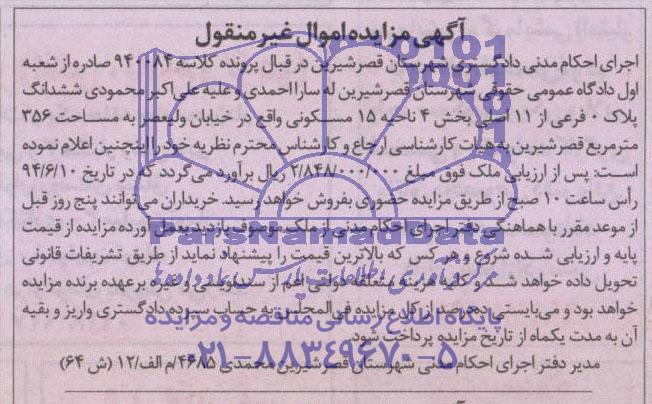 آگهی مزایده اموال غیر منقول
اجرای احکام مدنی دادگستری شهرستان قصرشیرین در قبال پرونده کلاسه ۹۴۰۰۸۴ صادره از شعبه
اول دادگاه عمومی حقوقی شهرستان قصرشیرین له سارا احمدی و علیه علی‌اکبر محمودی ششدانگ
پلاک ۰ فرعی از ۱۱ اصلی بخش ۴ ناحیه ۱۵ مسکونی واقع در خیابان ولیعصر به مساحت ۳۵۶
مترمربع قصرشیرین به هیات کارشناسی ارجاع و کارشناس محترم نظریه خود را اینچنین اعلام نموده
است: پس از ارزیابی ملک فوق مبلغ ۲/۸۴۸/۰۰۰/۰۰۰ ریال برآورد می‌گردد که در تاریخ ۹۴/۶/۱۰
رأس ساعت ۱۰ صبح از طریق مزایده حضوری بفروش خواهد رسید. خریداران می‌توانند پنج روز قبل
از موعد مقرر با هماهنگی دفتر اجرای احکام مدنی از ملک موصوف بازدید بعمل آورده مزایده از قیمت
پایه و ارزیابی شده شروع و هر کس که بالاترین قیمت را پیشنهاد نماید از طریق تشریفات قانونی
تحویل داده خواهد شد و کلیه هزینه متعلقه دولتی اعم از سندنویسی و غیره برعهده برنده مزایده
خواهد بود و می‌بایستی ده‌درصد از کل مزایده فی‌المجلس به حساب سپرده دادگستری واریز و بقیه
آن به مدت یکماه از تاریخ مزایده پرداخت شود.
مدیر دفتر اجرای احکام مدنی شهرستان قصرشیرین محمدی ۴۶۸۵/م الف/۱۲ (ش ۶۴)
ParsNamadData
مرکز فرآوری اطلاعات پارس نماد داده‌ها
پایگاه اطلاع رسانی مناقصه و مزایده
۰۲۱-۸۸۳۴۹۶۷۰-۵